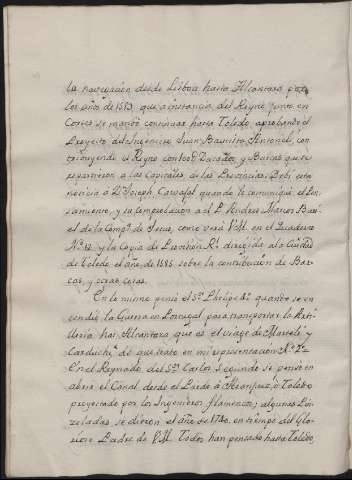 la navegación desde Lisboa hasta Alcantara por
los años de 1583 que a instancia del Reyno junto en
Cortes se mandó continuar hasta Toledo, aprobando el
Proyecto del Ingeniero Juan Bautista Antoneli, con
tribuyendo el Reyno con los Ducados y Barcas que se
repartieron a las Capitales de las Provincias. Debí esta
noticia a Dn. Joseph Carvajal quando le comuniqué el Pen
samiento, y su comprobacion a el P. Andres Marcos Bur
riel de la Compª. de Jesus, como verá V.M. en el Quaderno
Nº. 12 y la Copia de Provision Rl. dirigida a la Ciudad
de Toledo el año de 1585 sobre la contribución de Bar
cas, y otras cosas.
En lo mismo pensó el Sr. Phelipe 4º. quando se en
cendió la Guerra en Portugal para transportar la Arti
lleria has. Alcantara que es el viage de Marteli y
Carduchi, de que trato en mi representacion Nº. 7º.
En el Reynado del Sr. Carlos Segundo se pensó en
abrir el Canal desde el Pardo á Aranjuez, ó Toledo
proyectado por los Ingenieros flamencos; algunas Pin
zeladas se dieron el año de 1740. en tiempo del Glo
rioso Padre de V.M. Todos han pensado hasta Toledo,